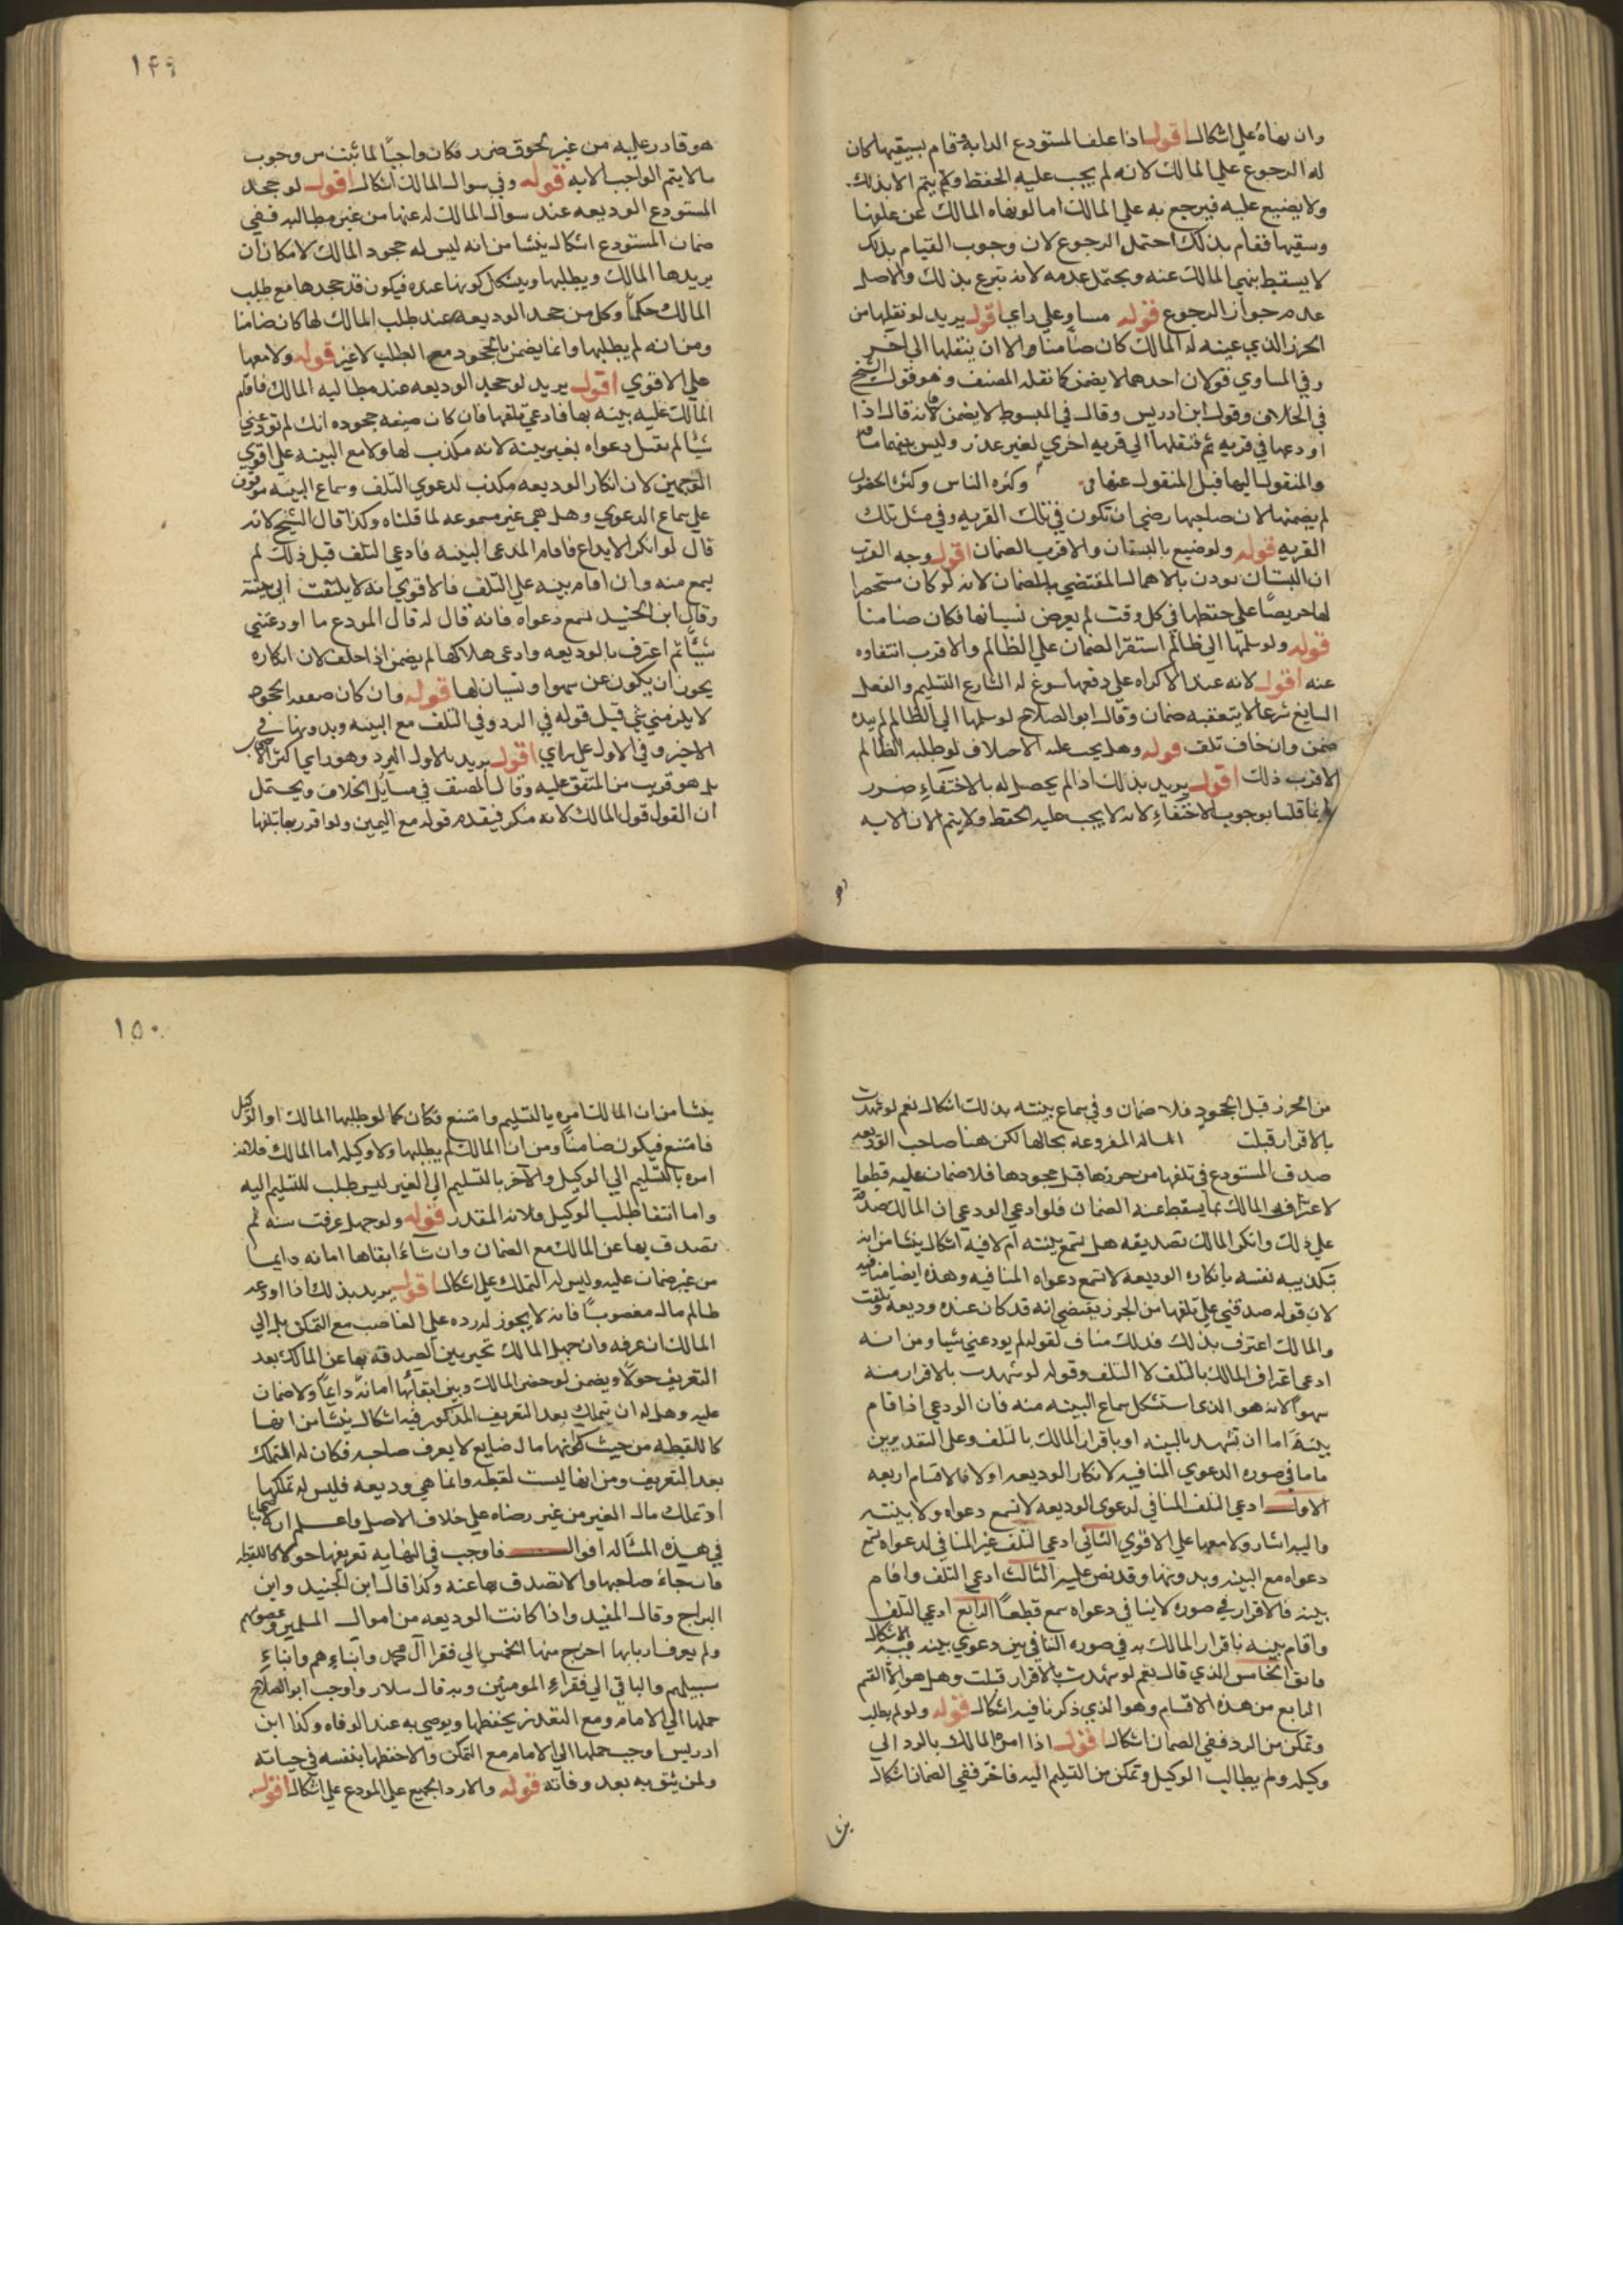 وان نهاه علي اشكال اقول اذا علف المستودع الدابة وقام بسقيها كان
له الرجوع علي المالك لانه لم يجب عليه الحفظ ولا يتم الا بذلك
ولا يضيع عليه فيرجع به علي المالك اما لو نهاه المالك عن علفها
وسقيها فقام بذلك احتمل الرجوع لان وجوب القيام بذلك
لا يسقط بنهي المالك عنه ويحتمل عدمه لانه تبرع بذلك والاصل
عدم جواز الرجوع قوله مساو علي راي اقول يريد لو نقلها من
الحرز الذي عينه له المالك كان ضامنا والا ان ينقلها الي احرز
وفي المساوي قولان احدهما لا يضمن كما نقله المصنف وهو قول الشيخ
في الخلاف وقول ابن ادريس وقال في المبسوط لا يضمن لانه قال اذا
اودعها في قريه ثم فنقلها الي قريه اخري لغير عذر وليس بينهما
والمنقول اليها قبل المنقول عنها وكثره الناس وكثره
لم يضمنها لان صاحبها رضي ان تكون في تلك القريه وفي مثل تلك
القريه قوله ولو ضيع بالنسيان والاقرب الضمان اقول وجه القرب
ان النسيان يوذن بالاهمال المقتضي للضمان لانه لو كان مستحضرا
لها حريصا علي حفظها في كل وقت لم يعرض نسيانها فكان ضامنا
قوله ولو سلمها الي ظالم استقر الضمان علي الظالم والاقرب انتفاوه
عنه اقول لانه عند الاكراه علي دفعها سوغ له الشارع التسليم والفعل
السايغ شرعا لا يتعقبه ضمان وقال ابو الصلاح لو سلمها الي الظالم لم بيده
ضمن وان خاف تلف قوله وهل يجب عليه الاختفاء لو طلبه الظالم
الاقرب ذلك اقول يريد بذلك اذا لم يحصل له بالاختفاء ضرر
وانما قلنا بوجوب الاختفاء لانه لا يجب عليه الحفظ ولا يتم الان الا به
هو
١٤٩
هو قادر عليه من غير لحوق ضرر فكان واجبا لما ثبت من وجوب
ما لا يتم الواجب الا به قوله وفي سوال المالك اشكال اقول لو جحد
المستودع الوديعه عند سوال المالك له عنها من غير مطالبه ففي
ضمان المستودع اشكال ينشا من انه ليس له جحود المالك لامكان ان
يريدها المالك ويطلبها ويشكل كونها عنده فيكون قد جحدها مع طلب
المالك حكما وكل من جحد الوديعه عند طلب المالك لها كان ضامنا
ومن انه لم يطلبها وانما يضمن بالجحود مع الطلب لا غير قوله ولا معها
علي الاقوي اقول يريد لو جحد الوديعه عند مطالبه المالك فاقام
المالك عليه بينه بها فادعي تلفها فان كان صيغه جحوده انك لم تودعني
شيا لم تقبل دعواه بغير بينة لانه مكذب لها ولا مع البينه علي اقوي
الوجهين لان انكار الوديعه مكذب لدعوي التلف وسماع البينه موقوف
علي سماع الدعوي وهل هي غير مسموعه لما قلناه وكذا قال الشيخ لانه
قال لو انكر الايداع فاقام المدعي البينه فادعي التلف قبل ذلك لم
يسمع منه وان اقام بينه علي التلف فالاقوي انه لا يلتفت الي بينته
وقال ابن الجنيد تسمع دعواه فانه قال له قال المودع ما اودعتني
شيئا ثم اعترف بالوديعه وادعي هلاكها لم يضمن اذا حلف لان انكاره
يجوز ان يكون عن سهو او نسيان لها قوله وان كان صيغه الجحود
لا يلزمني شي قبل قوله في الرد وفي التلف مع البينه وبدونها في
الاخير وفي الاول علي راي اقول يريد بالاول الرد وهو راي اكثر الاصحاب
بل هو قريب من المتفق عليه وقال المصنف في مسايل الخلاف ويحتمل
ان القول قول المالك لانه منكر فيقدم قوله مع اليمين ولو اقر ربها بتلفها
من الحرز قبل الجحود فلا ضمان وفي سماع بينته بذلك اشكال نعم لو شهدت
بالاقرار قبلت المساله المفروعه بحالها لكن هنا صاحب الوديعه
صدق المستودع في تلفها من حرزها قبل جحودها فلا ضمان عليه قطعا
لاعتراف المالك بما يسقط عنه الضمان فلو ادعي الودعي ان المالك صدقه
علي ذلك وانكر المالك تصديقه هل تسمع بينته ام لا فيه اشكال ينشا من انه
بتكذيبه نفسه بانكاره الوديعه لا تسمع دعواه المنافيه وهذه ايضا منافيه
لان قوله صدقني علي تلفها من الحرز يقتضي انه قد كان عنده وديعه وتلفت
والمالك اعترف بذلك فذلك مناف لقوله لم يودعني شيا ومن انه
ادعي اعتراف المالك بالتلف لا التلف وقوله لو شهدت بالاقرار منه
سهو لانه هو الذي استشكل سماع البينه منه فان الودعي اذا قام
بينة اما ان تشهد بالبينه او باقرار المالك بالتلف وعلي التقديرين
فاما في صوره الدعوي المنافيه لانكار الوديعه او لا فالاقسام اربعه
الاول ادعي التلف المنافي لدعوي الوديعه لا تسمع دعواه ولا بينته
واليه اشار ولا معها علي الاقوي الثاني ادعي التلف غير المنافي لدعواه تسمع
دعواه مع البينه وبدونها وقد نص عليه الثالث ادعي التلف واقام
بينه فالاقرار في صوره لا ينافي دعواه سمع قطعا الرابع ادعي التلف
واقام بينه باقرار المالك به في صوره التنافي بين دعوي بينه ففيه الاشكال
وابق الخامس الذي قال نعم لو شهدت بالاقرار قبلت وهل هو الا القسم
الرابع من هذه الاقسام وهو الذي ذكرنا فيه اشكال قوله ولو لم يطالبه
وتمكن من الرد ففي الضمان اشكال اقول اذا امره المالك بالرد الي
وكيله ولم يطالب الوكيل وتمكن من التسليم اليه فاخر ففي الضمان اشكال
ينشا
١٥٠
ينشا من ان المالك امره بالتسليم وامتنع فكان كما لو طلبها المالك او الوكيل
فامتنع فيكون ضامنا ومن ان المالك لم يطلبها ولا وكيله اما المالك فلانه
امره بالتسليم الي الوكيل والآخر بالتسليم الي الغير ليس طلب للتسليم اليه
واما انتفا طلب الوكيل فلانه المقدر قوله ولو جهل عرفت سنه ثم
تصدق بها عن المالك مع الضمان وان شاء ابقاها امانه دايما
من غير ضمان عليه وليس له التملك علي اشكال اقول يريد بذلك اذا اودعه
ظالم مالا مغصوبا فانه لا يجوز له رده علي الغاصب مع التمكن بل الي
المالك ان عرفه وان جهل المالك تخير بين الصدقه بها عن المالك بعد
التعريف حولا ويضمن لو حضر المالك وبين ابقائها امانة دائما ولا ضمان
عليه وهل له ان يتملك بعد التعريف المذكور فيه اشكال ينشا من انها
كاللقطه من حيث كونها مال ضايع لا يعرف صاحبه فكان له التملك
بعد التعريف ومن انها ليست لقطه وانما هي وديعه فليس له تملكها
اذ تملك مال الغير من غير رضاه علي خلاف الاصل واعلم ان لاصحابنا
في هذه المسئاله اقوال فاوجب في النهايه تعريفها حولا كاللقطه
فان جاء صاحبها والا تصدق بها عنه وكذا قال ابن الجنيد وابن
البراج وقال المفيد واذا كانت الوديعه من اموال المسلمين وغصوبهم
ولم يعرف اربابها اخرج منها الخمس الي فقرا آل محمد وابناءهم وابناء
سبيلهم والباقي الي فقراء المومنين وبه قال سلار واوجب ابو الصلاح
حملها الي الامام ومع التعذر يحفظها ويوصي به عند الوفاه وكذا ابن
ادريس اوجب حملها الي الامام مع التمكن والا حفظها بنفسه في حياته
ولمن يثق به بعد وفاته قوله والا رد الجميع علي المودع علي اشكال اقول